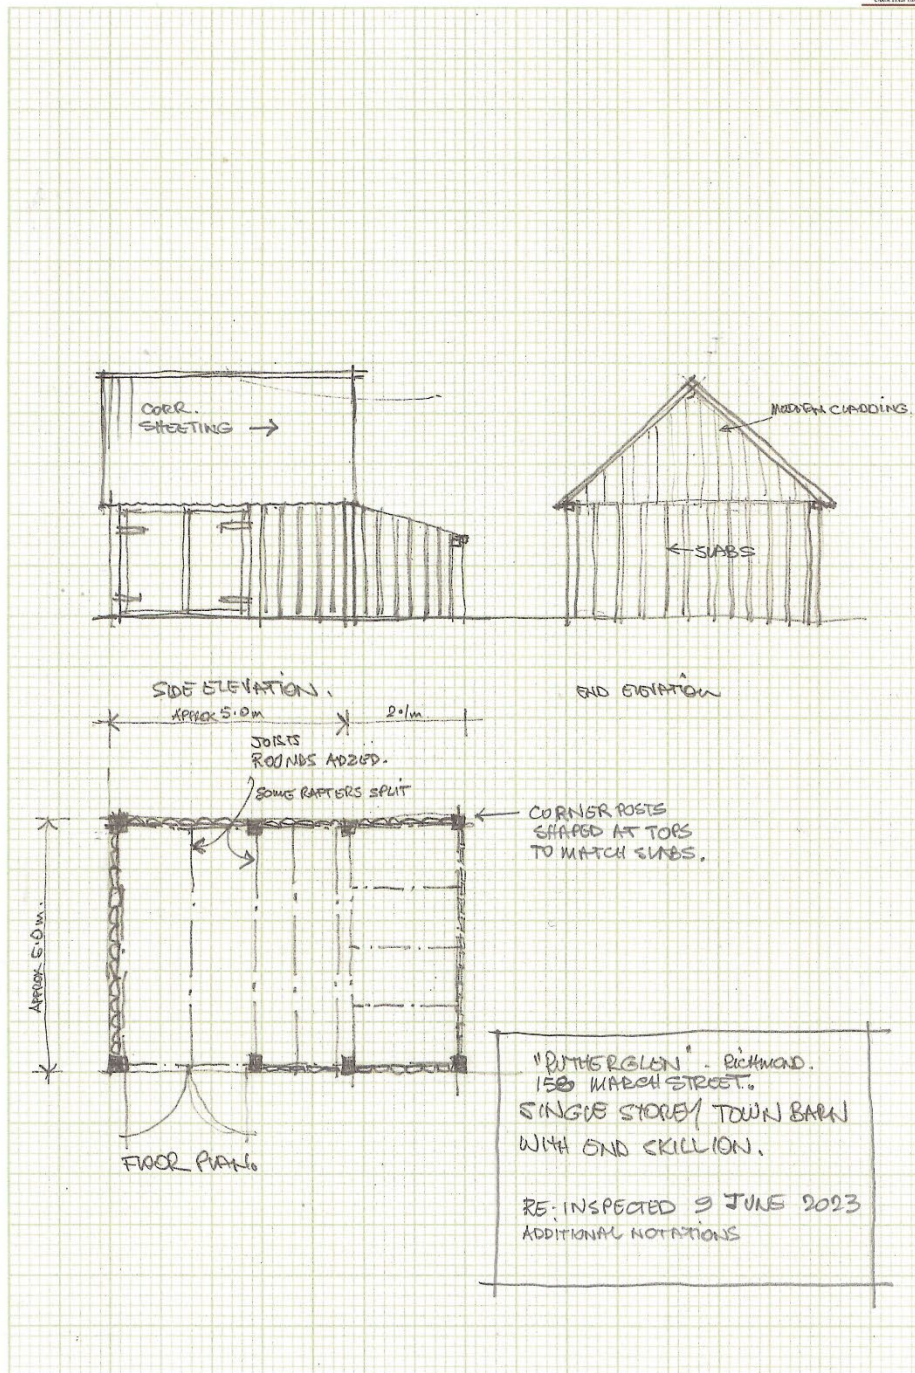 CORR.
SHEETING
MODERN CLADDING.
SLABS
SIDE ELEVATION.
END ELEVATION
APPROX 5.0m
2.1m
JOISTS
ROUNDS ADZED.
SOME RAFTERS SPLIT
CORNER POSTS
SHAPED AT TOPS
TO MATCH SLABS.
APPROX 5.0m.
FLOOR PLAN.
"RUTHERGLEN" - RICHMOND.
MARCH STREET.
SINGLE STOREY TOWN BARN
WITH END SKILLION.
RE-INSPECTED 9 JUNE 2023
ADDITIONAL NOTATIONS